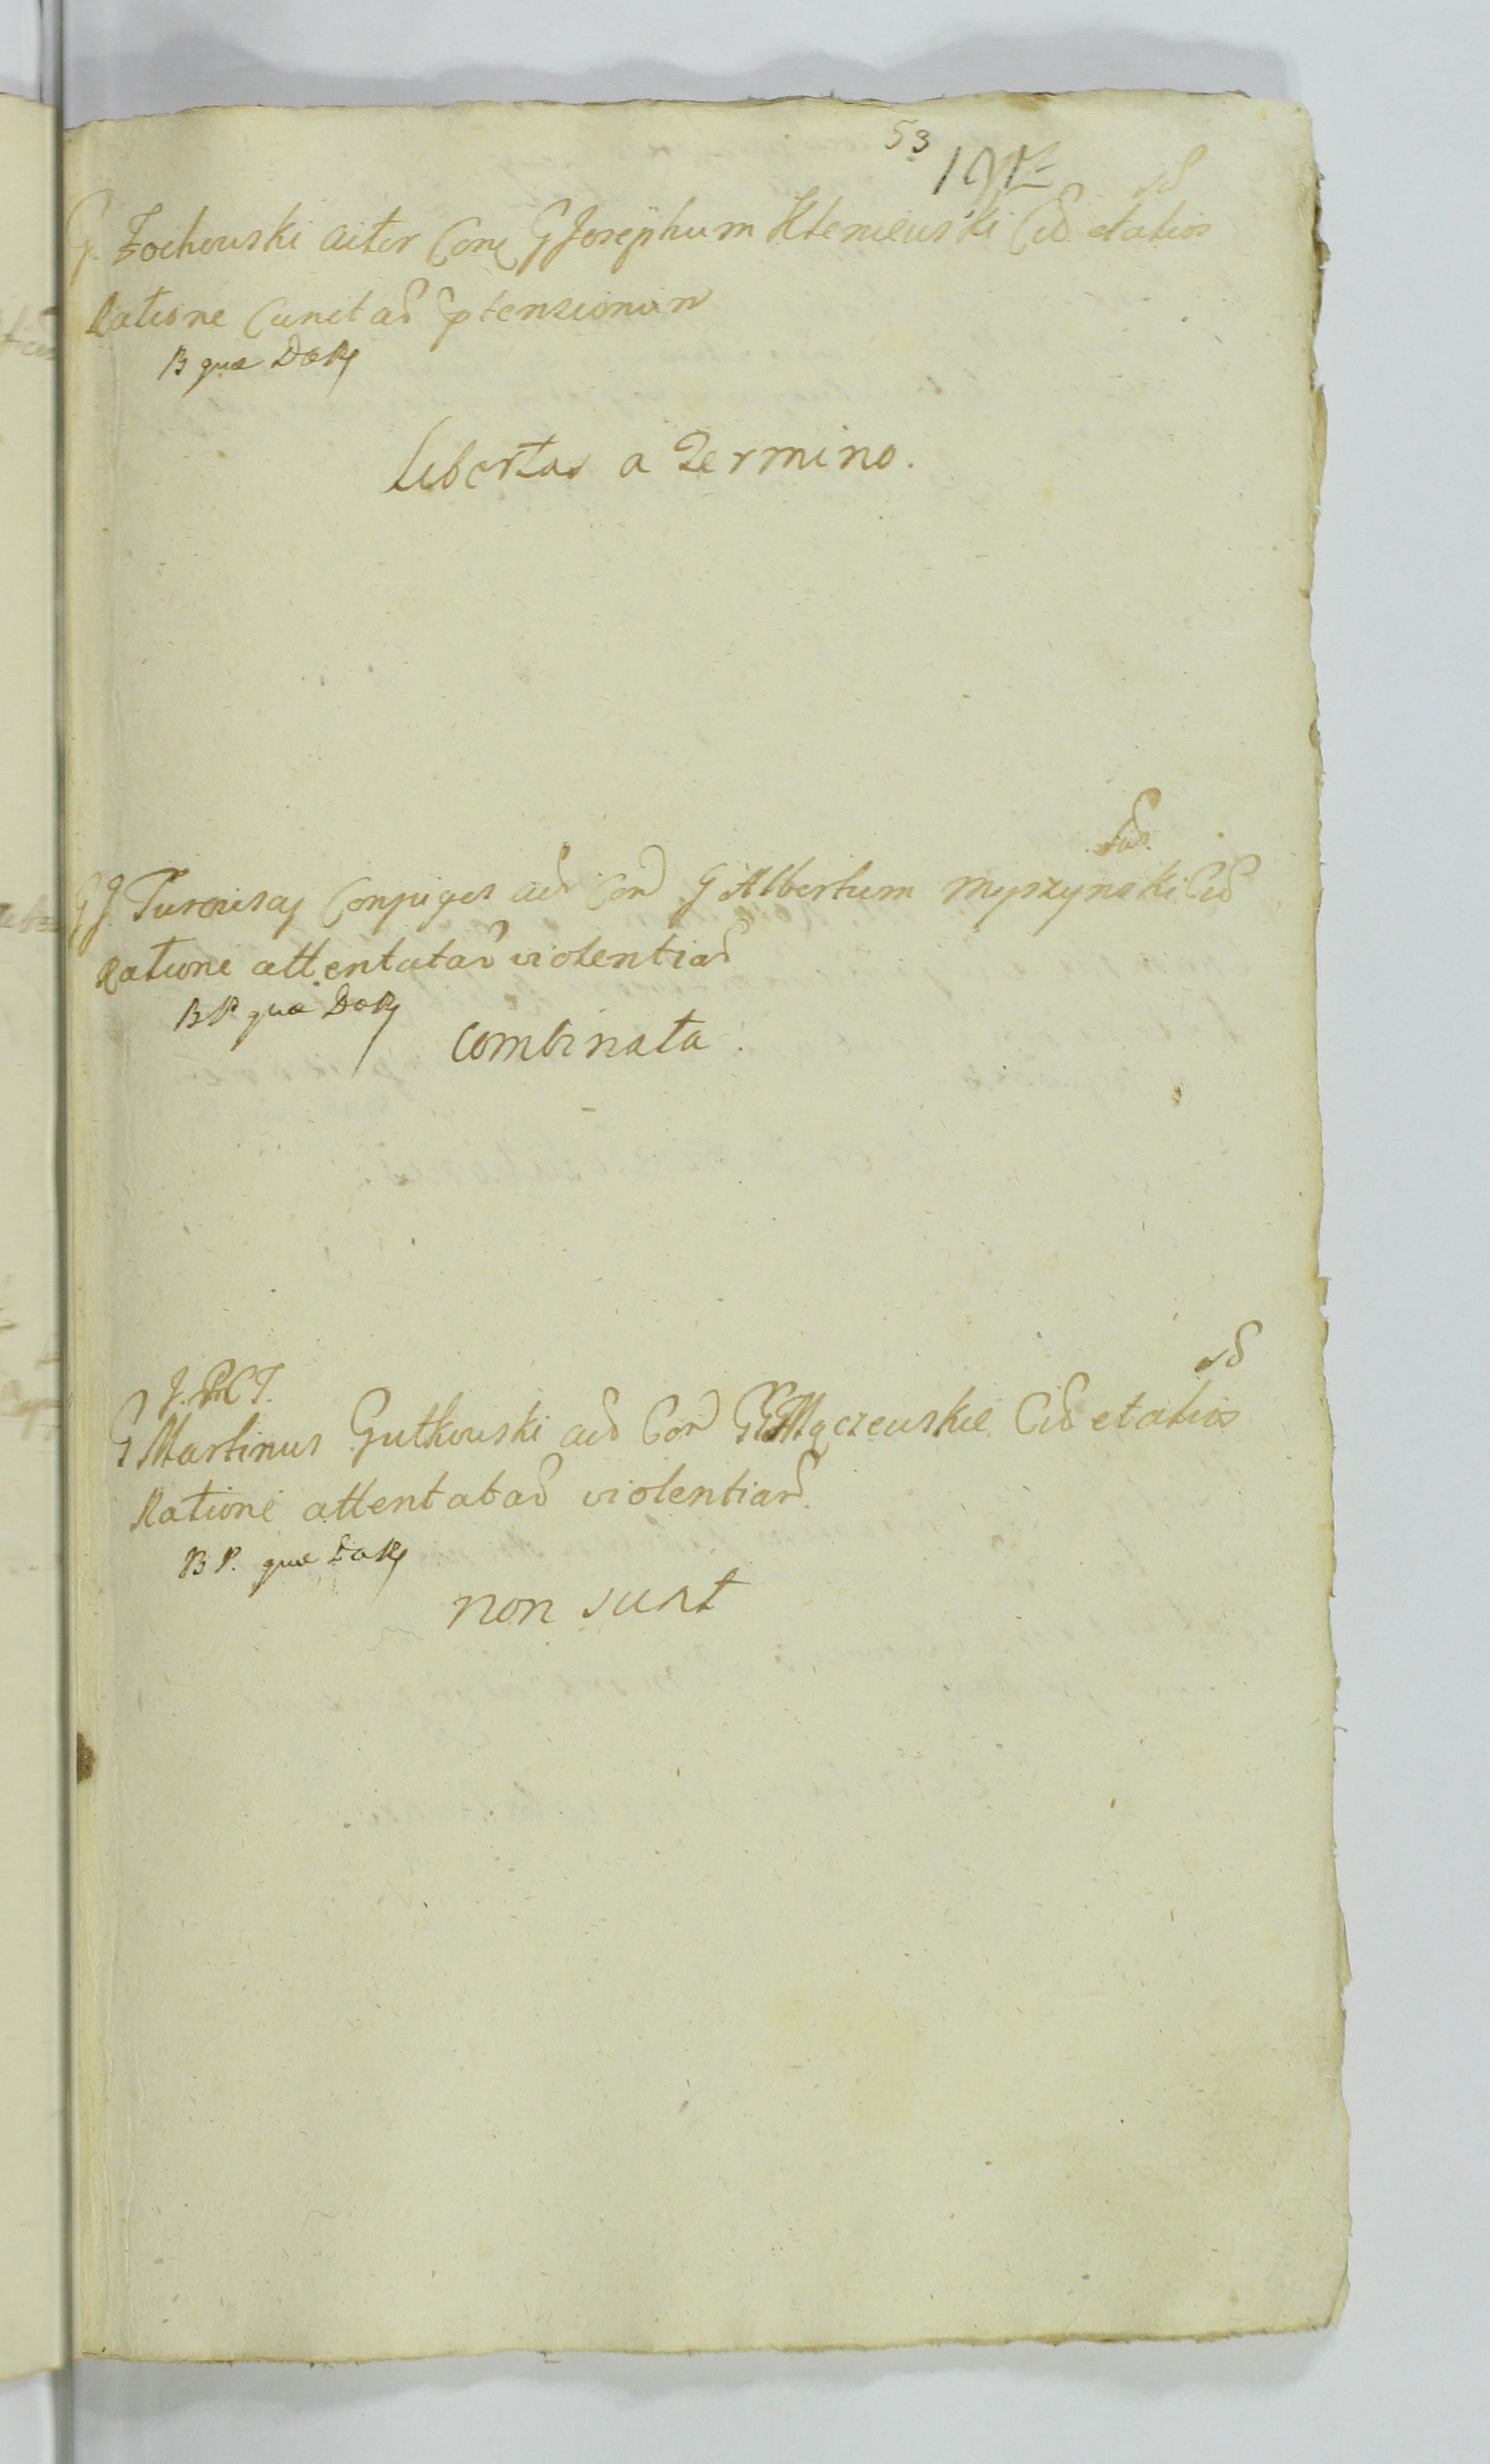 53
G. Żochowski actor Con G Josephum Kleniewski Cið et alios
Ratione Cunctað ptensionum
B quæ DoRy
Libertas a Termino.
GJ Conjuges að Con G Albertum Myszynski Cið
Ratione attentatað violentiað
BP. quæ DoRy
Combinata.
G Martinus Gutkowski að Con GG Mączewskie Cið et alios
Ratione attentatað violentiað
BP. quæ DoRy
non sunt